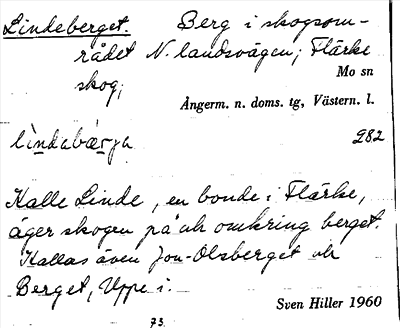 Lindeberget. Berg i skogsom-
rådet N. landsvägen, Flärke
skog,
Mo sn
Ångerm. n. doms. tg, Västern. l.
lìndabæ̀rja 282
Kalle Linde, en bonde i Flärke,
äger skogen på och omkring berget.
Kallas även Jon-Olsberget och
Berget, Uppe i.
Sven Hiller 1960
73